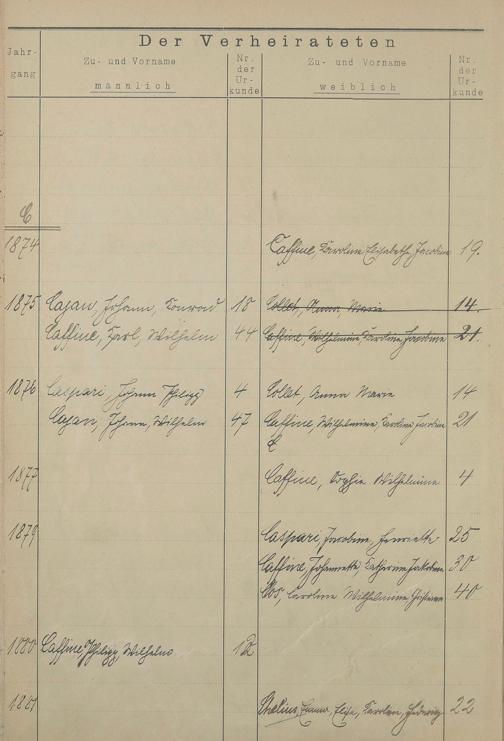 Der Verheirateten
Jahr-
gang
Zu- und Vorname
männlich
Nr.
der
Ur-
kunde
Zu- und Vorname
weiblich
Nr.
der
Ur-
kunde
C
1874 Caffine, Karoline Elisabeth Jacobine 19.
1875 Cajan, Johann, Konrad 18 Collet, Anna Marie 14.
Caffine, Karl, Wilhelm 44 Caffine, Wilhelmine, Karoline Jacobine 21.
1876 Caspari, Johann Philipp 4 Collet, Anna Marie 14
Cajan, Johann, Wilhelm 47 Caffine, Wilhelmine, Karoline Jacobine 21
C
1877 Caffine, Sophie Wilhelmine 4
1879 Caspari, Jacobine, Henriette 25
Caffine, Johannette, Katharine 30
Caroline Wilhelmine 40
1880 Caffine, Philipp, Wilhelm 12
1881 Chelius, Emma, Elise, Karoline, Hedwig 22